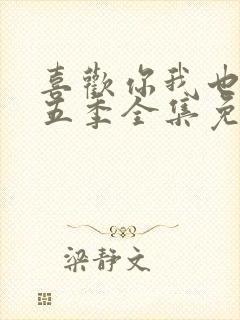 喜歡你我也
五季全集免
梁静文